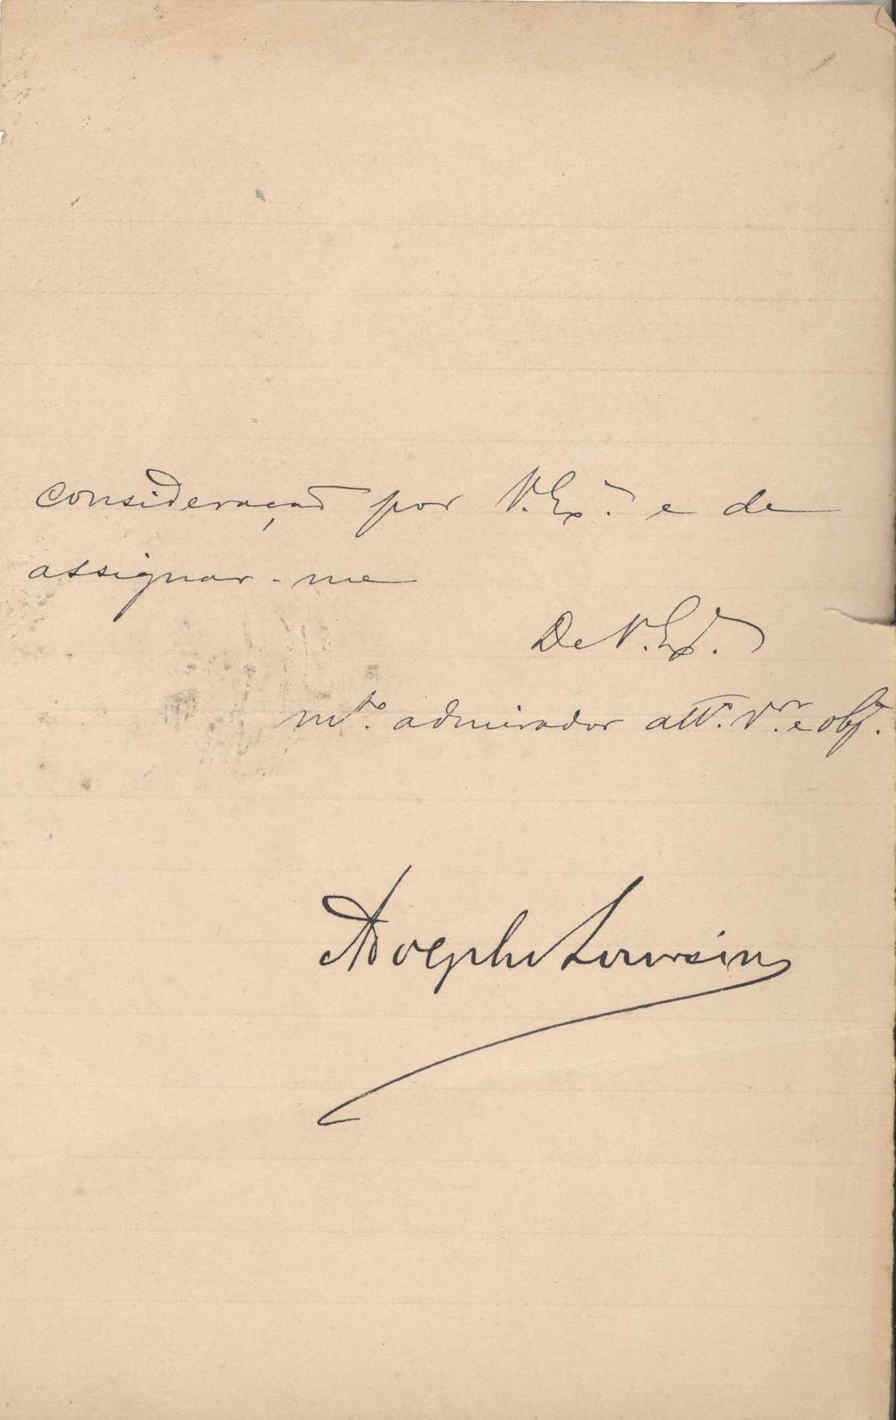 consideração por V. Exª. e de
assignar-me
De V. Exª.
mto. admirador attº. Vor. e obrº.
Adolpho